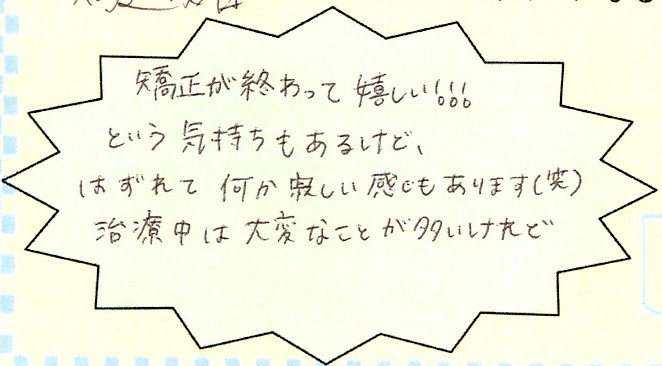 矯正が終わって嬉しい!!!
という気持ちもあるけど、
はずれて何か寂しい感じもあります(笑)
治療中は大変なことが多いけれど